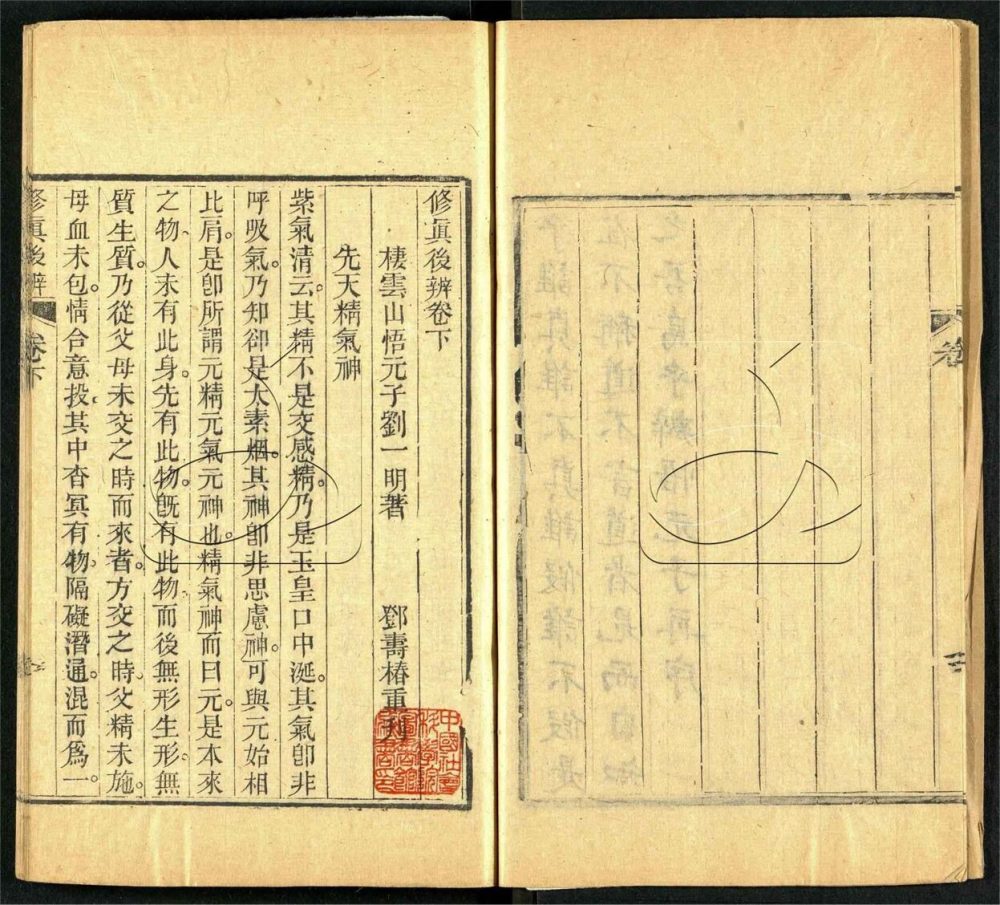 修眞後辨卷下
棲雲山悟元子劉一明著 鄧壽椿重刋
先天精氣神
紫氣淸云。其精不是交感精。乃是玉皇口中涎。其氣卽非
呼吸氣。乃知卻是太素烟。其神卽非思慮神。可與元始相
比肩。是卽所謂元精元氣元神也。精氣神而曰元。是本來
之物。人未有此身。先有此物。旣有此物。而後無形生形。無
質生質。乃從父母未交之時而來者。方交之時。父精未施。
母血未包。情合意投。其中杳冥有物。隔礙潛通。混而爲一。
修眞後辨 卷下
卷